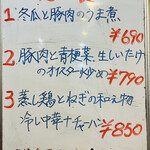 1 冬瓜と豚肉のうま煮
¥690
2. 豚肉と青梗菜、生しいたけ
のオイスター炒め
¥790
3 蒸し鶏とねぎの和え物
冷し中華 チャーハン
¥850